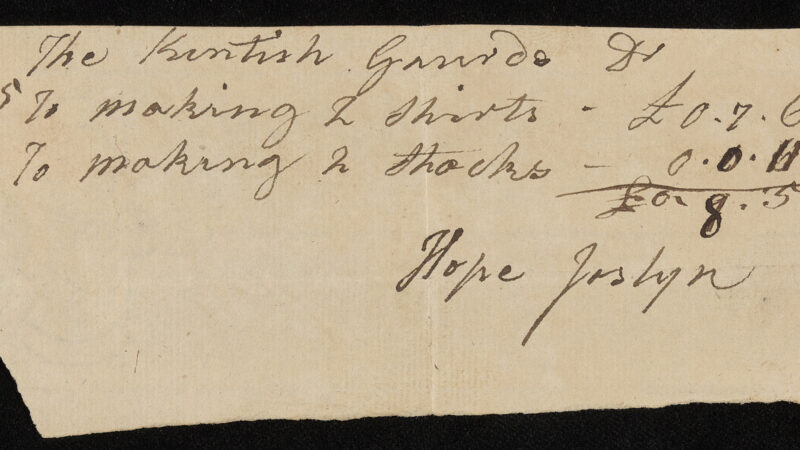 The Kentish Gaurds Dr
5 To making 2 shirts - £ 0. 7. 6
To making 2 Stocks - 0. 0. 11
£ 0 8. 5
Hope Joslyn